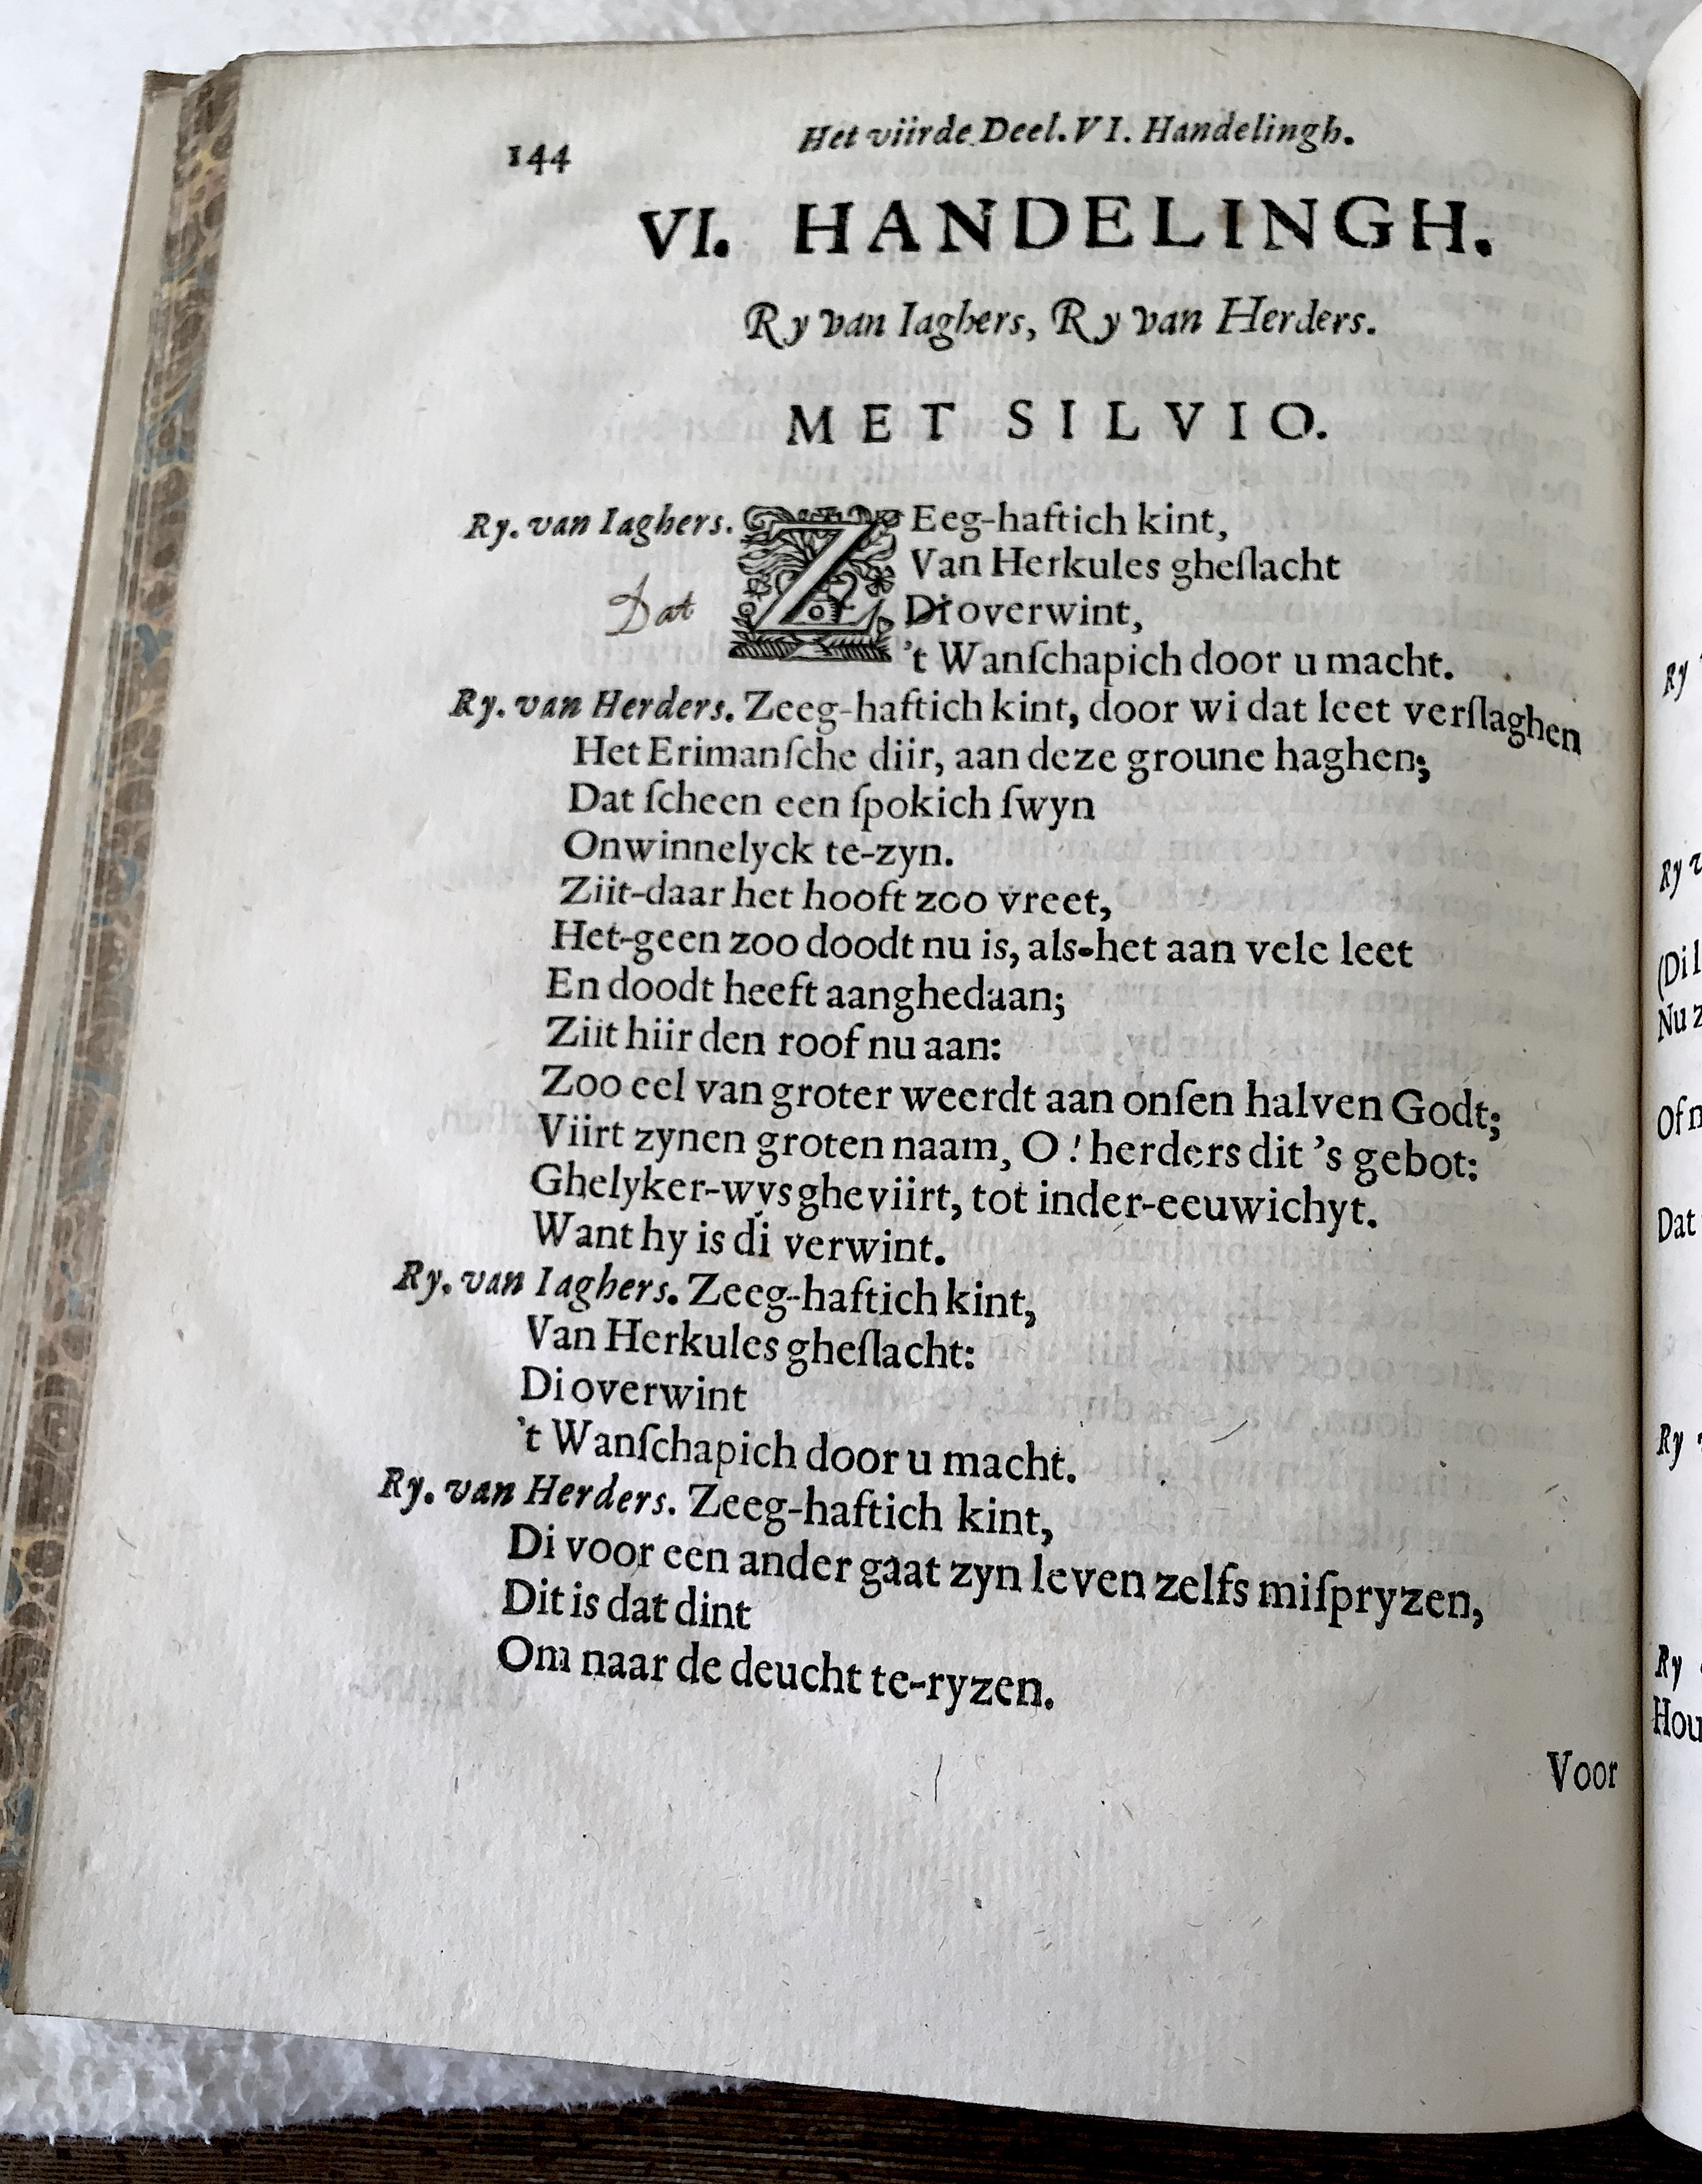 144
Het viirde Deel. VI. Handelingh.
VI. HANDELINGH.
Ry van Iaghers, Ry van Herders.
MET SILVIO.
Ry. van Iaghers. ZEeg-haftich kint,
Van Herkules gheſlacht
Dat Di overwint,
't Wanſchapich door u macht.
Ry. van Herders. Zeeg-haftich kint, door wi dat leet verſlaghen
Het Erimanſche diir, aan deze groune haghen;
Dat ſcheen een ſpokich ſwyn
Onwinnelyck te-zyn.
Ziit-daar het hooft zoo vreet,
Het-geen zoo doodt nu is, als-het aan vele leet
En doodt heeft aanghedaan;
Ziit hiir den roof nu aan:
Zoo eel van groter weerdt aan onſen halven Godt;
Viirt zynen groten naam, O! herders dit 's gebot:
Ghelyker-wys gheviirt, tot inder-eeuwichyt.
Want hy is di verwint.
Ry. van Iaghers. Zeeg-haftich kint,
Van Herkules gheſlacht:
Di overwint
't Wanſchapich door u macht.
Ry. van Herders. Zeeg-haftich kint,
Di voor een ander gaat zyn leven zelfs miſpryzen,
Dit is dat dint
Om naar de deucht te-ryzen.
Voor
Ry
Ry
(Di
Nu
Of
Dat
Ry
Ry
Hou